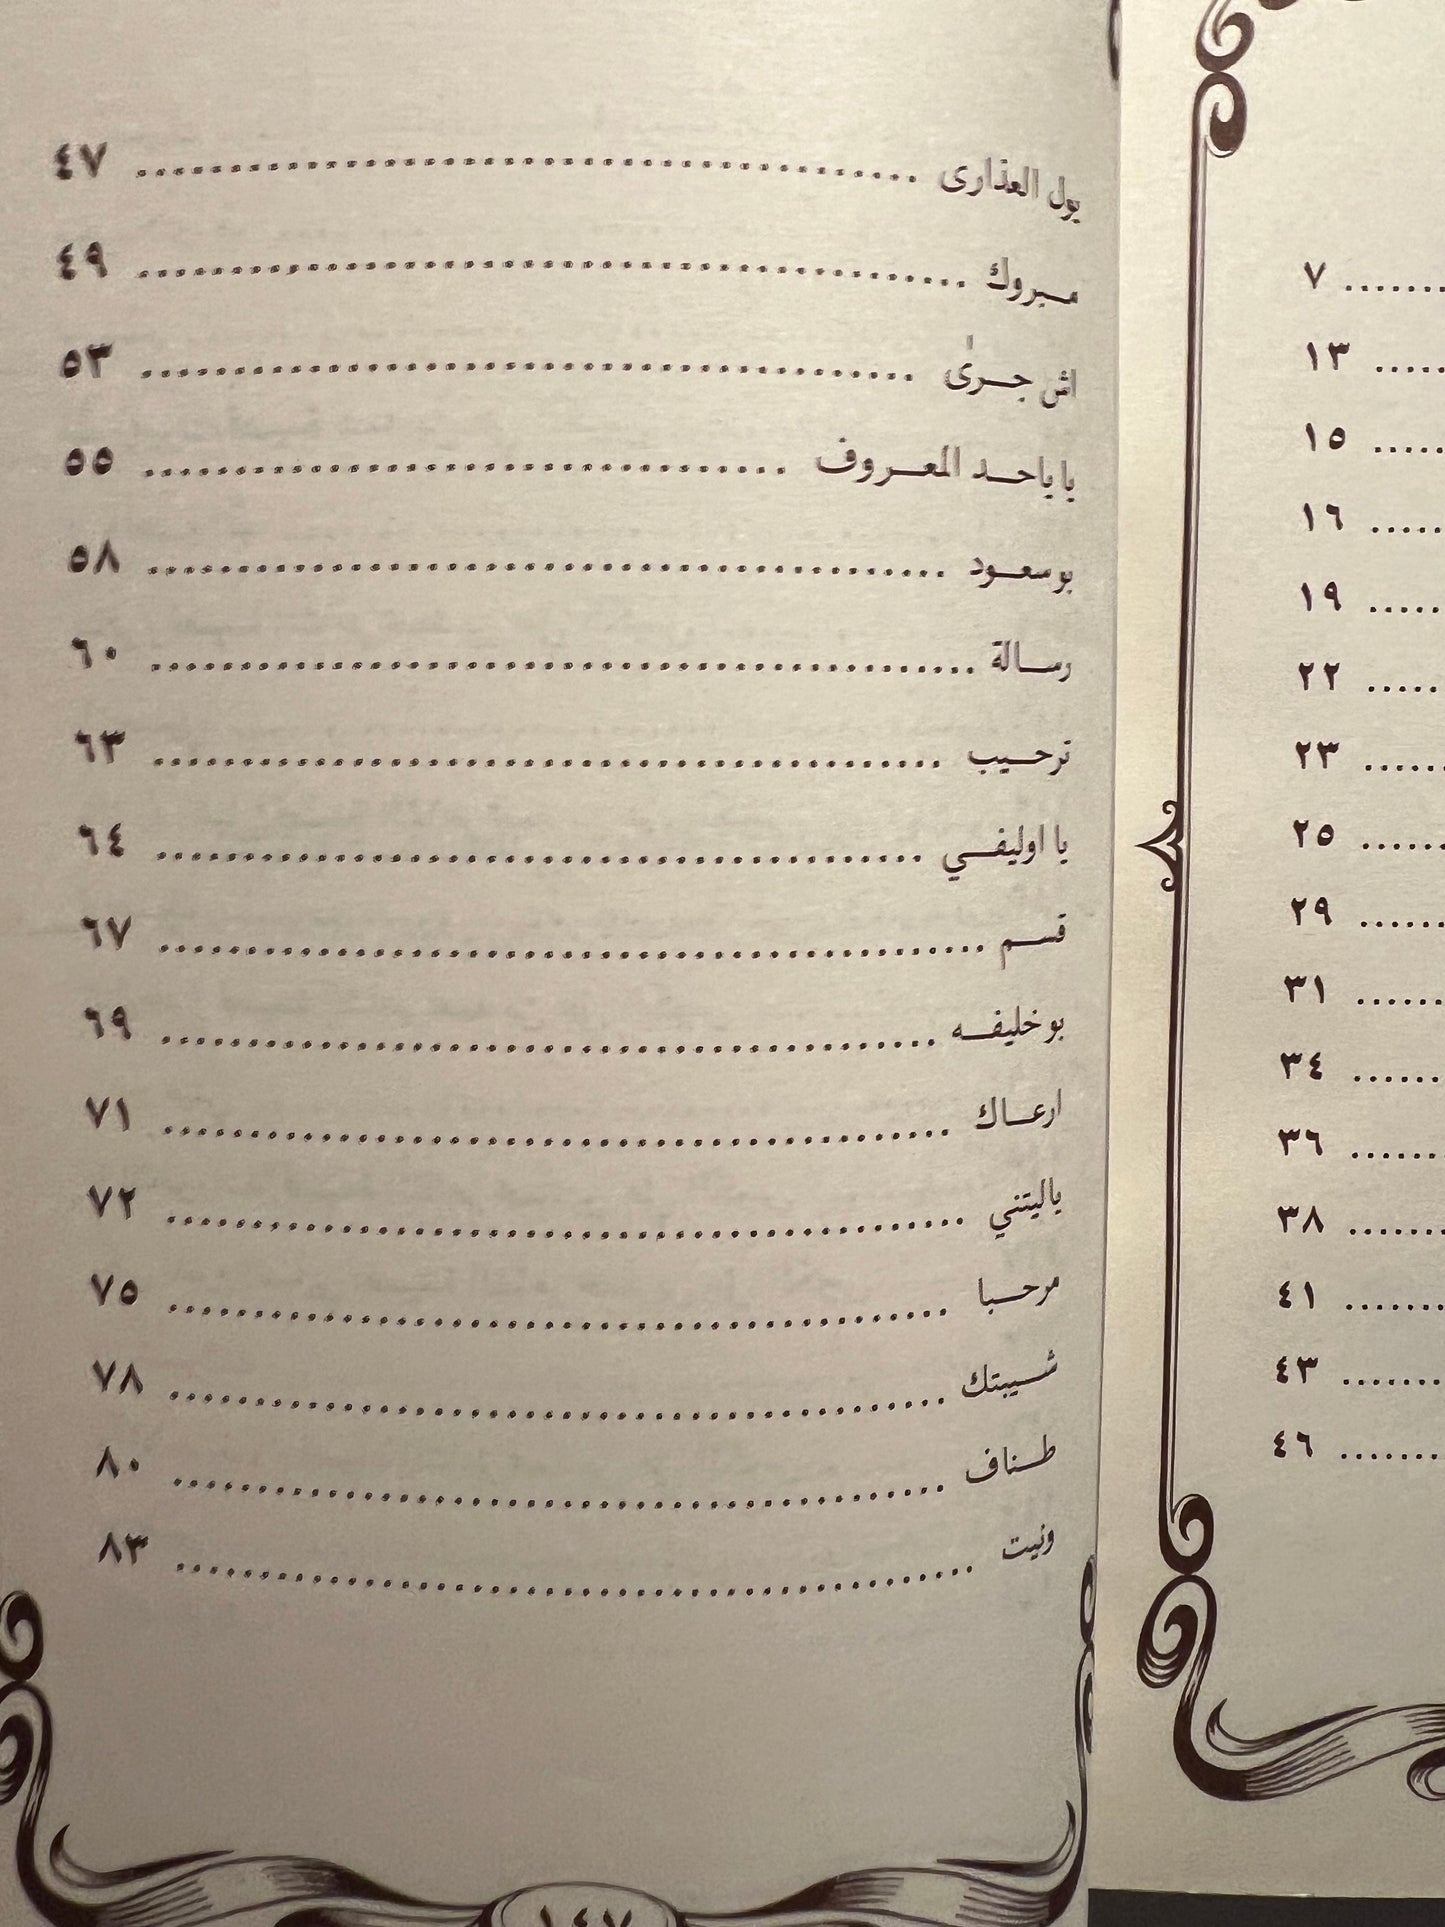 ٧ ........
١٣ ......
١٥ ......
١٦ ......
١٩ ......
٢٢ ......
٢٣ ......
٢٥ ......
٢٩ ......
٣١ ......
٣٤ ......
٣٦ ......
٣٨ ......
٤١ ......
٤٣ ......
٤٦ ......
يول العذارى ........ ٤٧
مبروك ........ ٤٩
اش جرىٰ ........ ٥٣
يا ياحد المعروف ........ ٥٥
بو سعود ........ ٥٨
رسالة ........ ٦٠
ترحيب ........ ٦٣
يا اوليفي ........ ٦٤
قسم ........ ٦٧
بو خليفه ........ ٦٩
ارعاك ........ ٧١
ياليتني ........ ٧٢
مرحبا ........ ٧٥
شيبتك ........ ٧٨
طناف ........ ٨٠
ونيت ........ ٨٣
١٤٧